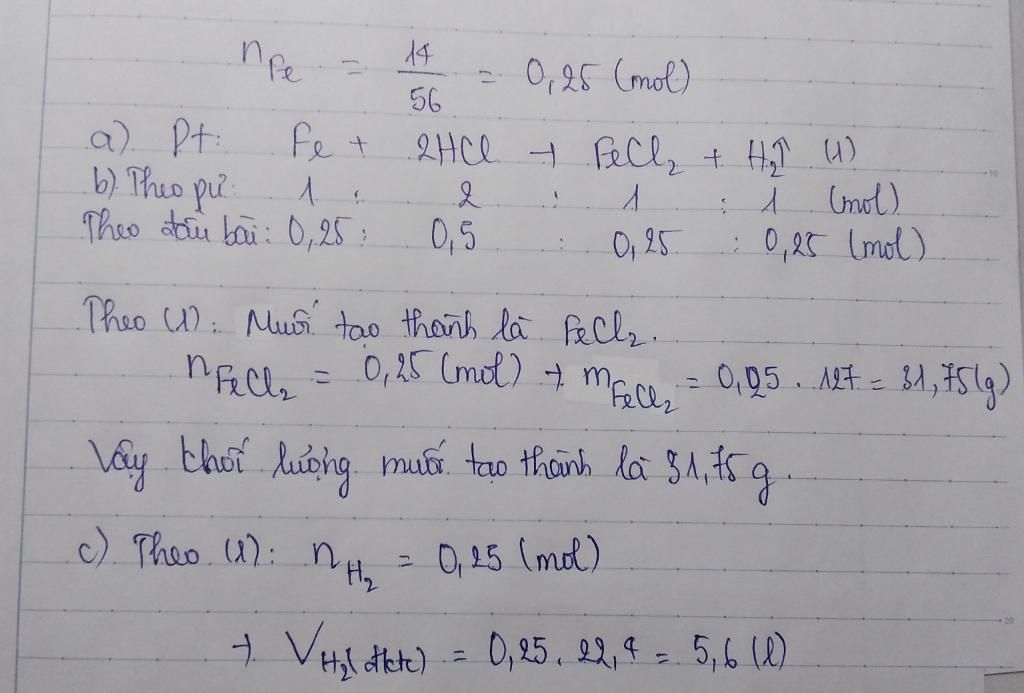 nFe = 14/56 = 0,25 (mol)
a) Pt: Fe + 2HCl → FeCl2 + H2↑ (1)
b) Theo pư: 1 : 2 : 1 : 1 (mol)
Theo đầu bài: 0,25 : 0,5 : 0,25 : 0,25 (mol)
Theo (1): Muối tạo thành là FeCl2.
nFeCl2 = 0,25 (mol) → mFeCl2 = 0,25 . 127 = 31,75(g)
Vậy khối lượng muối tạo thành là 31,75 g.
c) Theo (1): nH2 = 0,25 (mol)
→ VH2(đktc) = 0,25. 22,4 = 5,6 (l)